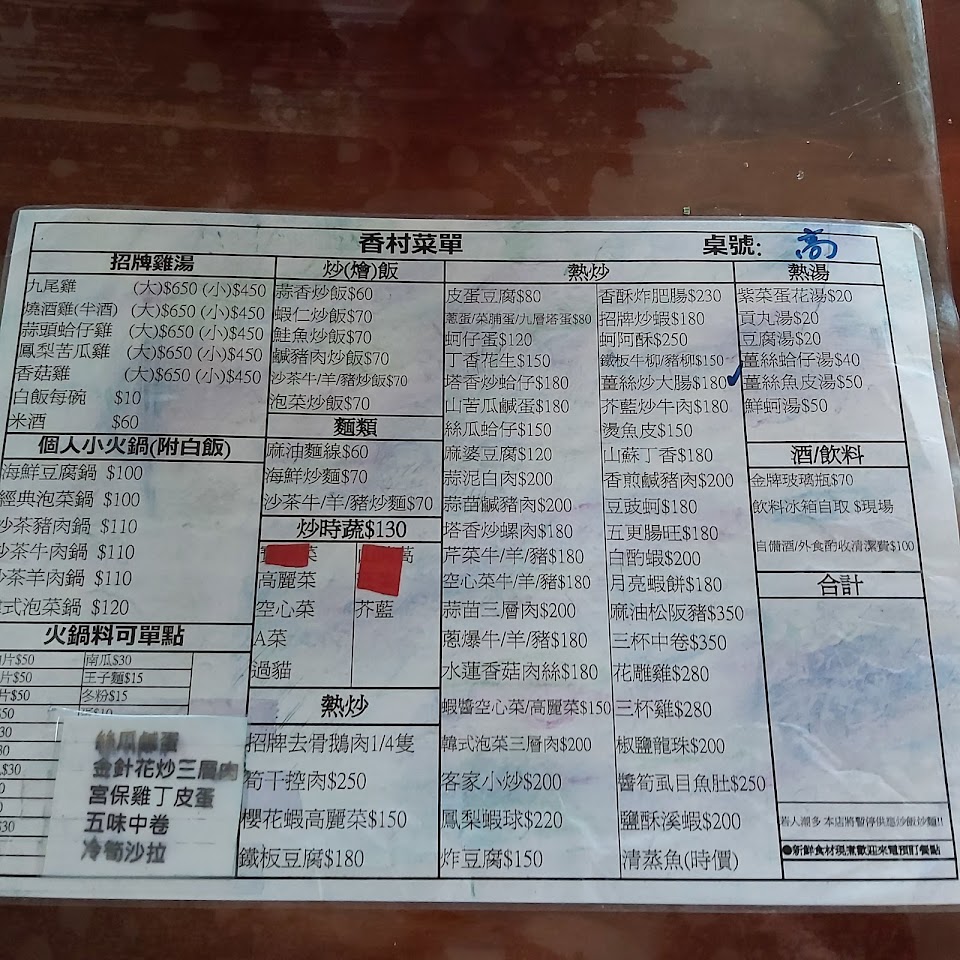 香村菜單
桌號: 高
招牌雞湯
九尾雞 (大)$650 (小)$450
燒酒雞(半酒) (大)$650 (小)$450
蒜頭蛤仔雞 (大)$650 (小)$450
鳳梨苦瓜雞 (大)$650 (小)$450
香菇雞 (大)$650 (小)$450
白飯每碗 $10
米酒 $60
個人小火鍋(附白飯)
海鮮豆腐鍋 $100
經典泡菜鍋 $100
沙茶豬肉鍋 $110
沙茶牛肉鍋 $110
沙茶羊肉鍋 $110
式泡菜鍋 $120
火鍋料可單點
片$50 南瓜$30
片$50 王子麵$15
片$50 冬粉$15
$50
$30
$30
絲瓜鹹蛋
金針花炒三層肉
宮保雞丁皮蛋
五味中卷
冷筍沙拉
炒(燴)飯
蒜香炒飯$60
蝦仁炒飯$70
鮭魚炒飯$70
鹹豬肉炒飯$70
沙茶牛/羊/豬炒飯$70
泡菜炒飯$70
麵類
麻油麵線$60
海鮮炒麵$70
沙茶牛/羊/豬炒麵$70
炒時蔬$130
菜
高麗菜
空心菜 芥藍
A菜
過貓
熱炒
招牌去骨鵝肉1/4隻
筍干控肉$250
櫻花蝦高麗菜$150
鐵板豆腐$180
熱炒
皮蛋豆腐$80
蔥蛋/菜脯蛋/九層塔蛋$80
蚵仔蛋$120
丁香花生$150
塔香炒蛤仔$180
山苦瓜鹹蛋$180
絲瓜蛤仔$150
麻婆豆腐$120
蒜泥白肉$200
蒜苗鹹豬肉$200
塔香炒螺肉$180
芹菜牛/羊/豬$180
空心菜牛/羊/豬$180
蒜苗三層肉$200
蔥爆牛/羊/豬$180
水蓮香菇肉絲$180
蝦醬空心菜/高麗菜$150
韓式泡菜三層肉$200
客家小炒$200
鳳梨蝦球$220
炸豆腐$150
香酥炸肥腸$230
招牌炒蝦$180
蚵阿酥$250
鐵板牛柳/豬柳$150
薑絲炒大腸$180
芥藍炒牛肉$180
燙魚皮$150
山蘇丁香$180
香煎鹹豬肉$200
豆豉蚵$180
五更腸旺$180
白酌蝦$200
月亮蝦餅$180
麻油松阪豬$350
三杯中卷$350
花雕雞$280
三杯雞$280
椒鹽龍珠$200
醬筍虱目魚肚$250
鹽酥溪蝦$200
清蒸魚(時價)
熱湯
紫菜蛋花湯$20
貢丸湯$20
豆腐湯$20
薑絲蛤仔湯$40
薑絲魚皮湯$50
鮮蚵湯$50
酒/飲料
金牌玻璃瓶$70
飲料冰箱自取 $現場
自備酒/外食酌收清潔費$100
合計
若人潮多 本店將暫停供應炒飯炒麵!!
●新鮮食材現煮歡迎來電預訂餐點